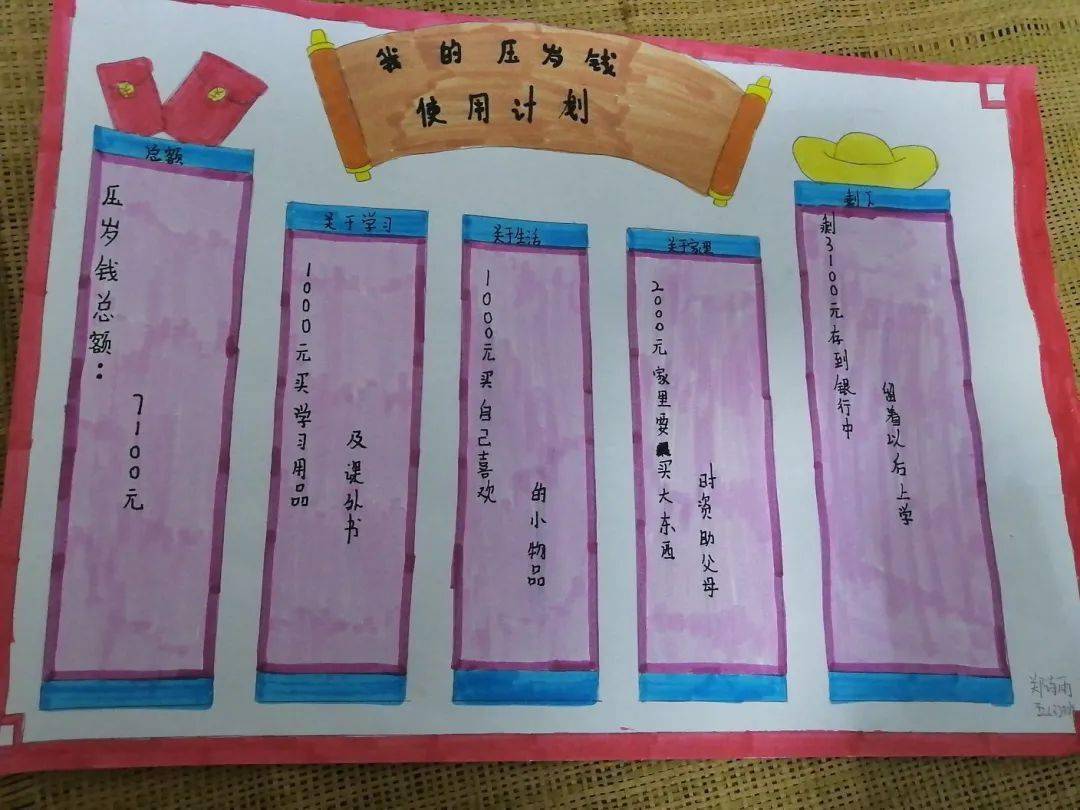 我的压岁钱
使用计划
总额
压岁钱总额：
7100元
关于学习
1000元买学习用品
及课外书
关于生活
1000元买自己喜欢
的小物品
关于家里
2000元家里要买大东西
时资助父母
剩下
剩3100元存到银行中
留着以后上学